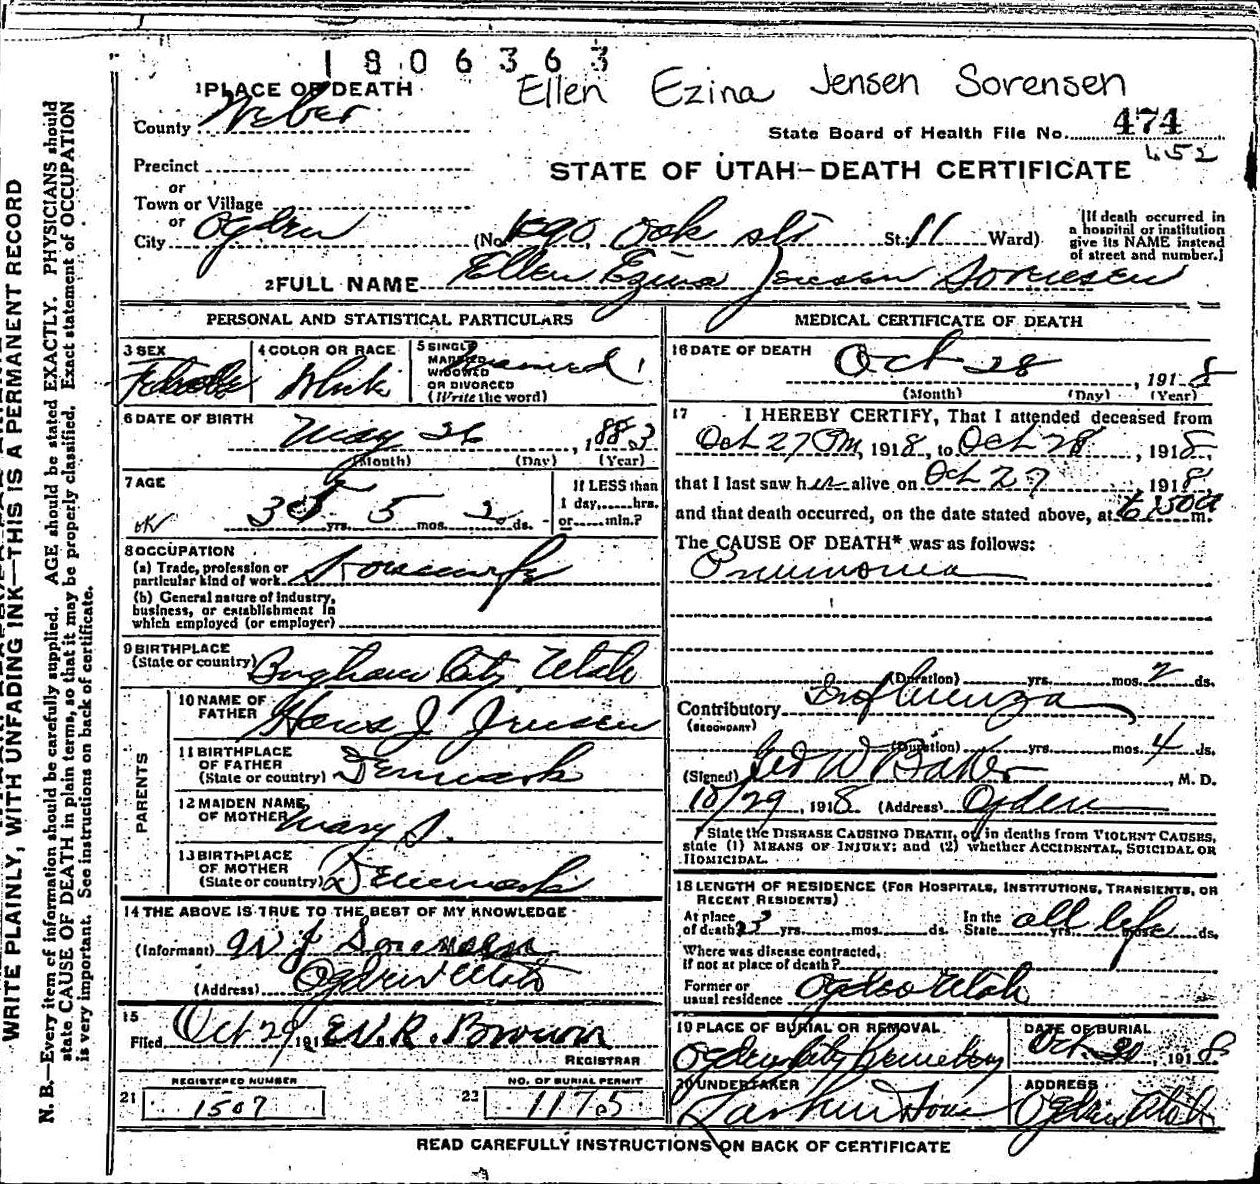 1806363
Ellen Ezina Jensen Sorensen
1 PLACE OF DEATH
County Weber
State Board of Health File No. 474
452
Precinct
STATE OF UTAH—DEATH CERTIFICATE
or
Town or Village
or
City Ogden (No. 1890 Oak st St. 11 Ward)
[If death occurred in
a hospital or institution
give its NAME instead
of street and number.]
2 FULL NAME Ellen Ezina Jensen Sorensen
PERSONAL AND STATISTICAL PARTICULARS
3 SEX
Female
4 COLOR OR RACE
White
5 SINGLE
MARRIED
WIDOWED
OR DIVORCED
(Write the word)
married
6 DATE OF BIRTH
May 26, 1883
(Month) (Day) (Year)
7 AGE
OK
35 yrs. 5 mos. 2 ds.
If LESS than
1 day,......hrs.
or......min.?
8 OCCUPATION
(a) Trade, profession or
particular kind of work Housewife
(b) General nature of industry,
business, or establishment in
which employed (or employer)
9 BIRTHPLACE
(State or country) Brigham City Utah
PARENTS
10 NAME OF
FATHER Hans J. Jensen
11 BIRTHPLACE
OF FATHER
(State or country) Denmark
12 MAIDEN NAME
OF MOTHER Mary S.
13 BIRTHPLACE
OF MOTHER
(State or country) Denmark
14 THE ABOVE IS TRUE TO THE BEST OF MY KNOWLEDGE
(Informant) W J Sorensen
(Address) Ogden Utah
15
Filed Oct 29, 191 W. R. Brown
REGISTRAR
REGISTERED NUMBER
21 1507
NO. OF BURIAL PERMIT
22 1175
MEDICAL CERTIFICATE OF DEATH
16 DATE OF DEATH
Oct 28, 1918
(Month) (Day) (Year)
17 I HEREBY CERTIFY, That I attended deceased from
Oct 27 PM, 1918, to Oct 28, 1918,
that I last saw her alive on Oct 27 1918
and that death occurred, on the date stated above, at 6:50 a m.
The CAUSE OF DEATH* was as follows:
Pneumonia
(Duration) yrs. mos. 2 ds.
Contributory Influenza
(SECONDARY)
(Duration) yrs. mos. 4 ds.
(Signed) Geo W Baker, M. D.
10/29, 1918 (Address) Ogden
* State the DISEASE CAUSING DEATH, or, in deaths from VIOLENT CAUSES,
state (1) MEANS OF INJURY; and (2) whether ACCIDENTAL, SUICIDAL OR
HOMICIDAL.
18 LENGTH OF RESIDENCE (FOR HOSPITALS, INSTITUTIONS, TRANSIENTS, OR
RECENT RESIDENTS)
At place
of death 23 yrs. mos. ds.
In the
State all life yrs. mos. ds.
Where was disease contracted,
if not at place of death?
Former or
usual residence Ogden Utah
19 PLACE OF BURIAL OR REMOVAL
Ogden City Cemetery
DATE OF BURIAL
Oct. 30, 1918
20 UNDERTAKER
Larkin
ADDRESS
Ogden Utah
READ CAREFULLY INSTRUCTIONS ON BACK OF CERTIFICATE
WRITE PLAINLY, WITH UNFADING INK—THIS IS A PERMANENT RECORD
N. B.—Every item of information should be carefully supplied. AGE should be stated EXACTLY. PHYSICIANS should
state CAUSE OF DEATH in plain terms, so that it may be properly classified. Exact statement of OCCUPATION
is very important. See instructions on back of certificate.